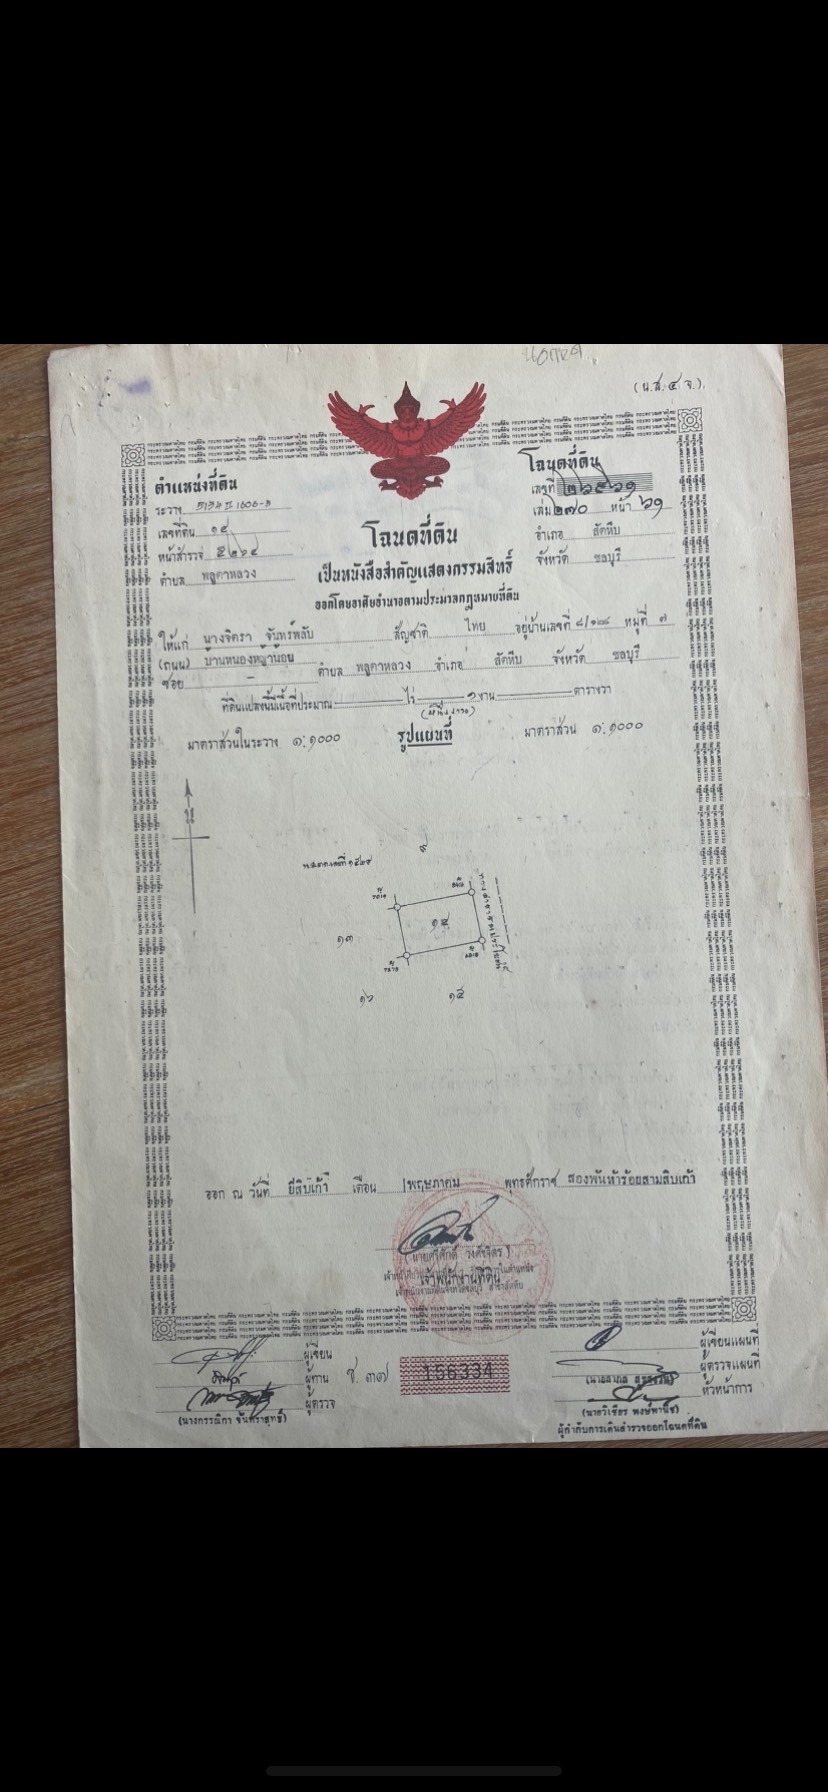 (น.ส.๔ จ.)
ตำแหน่งที่ดิน
ระวาง 5134 II 1606-8
เลขที่ดิน ๑๔
หน้าสำรวจ
ตำบล พลูตาหลวง
โฉนดที่ดิน
เลขที่
เล่ม ๒๗๐ หน้า ๖๑
อำเภอ สัตหีบ
จังหวัด ชลบุรี
โฉนดที่ดิน
เป็นหนังสือสำคัญแสดงกรรมสิทธิ์
ออกโดยอาศัยอำนาจตามประมวลกฎหมายที่ดิน
ให้แก่ นางจิตรา จันทร์พลับ สัญชาติ ไทย อยู่บ้านเลขที่ หมู่ที่ ๗
(ถนน) บ้านหนองหญ้าน้อย
ซอย - ตำบล พลูตาหลวง อำเภอ สัตหีบ จังหวัด ชลบุรี
ที่ดินแปลงนี้มีเนื้อที่ประมาณ - ไร่ ๑ งาน - ตารางวา
(หนึ่งงาน)
มาตราส่วนในระวาง ๑:๑๐๐๐ รูปแผนที่ มาตราส่วน ๑:๑๐๐๐
น
๑๔
๑๓
๑๖ ๑๕
ทางสาธารณประโยชน์
ออก ณ วันที่ ยี่สิบเก้า เดือน พฤษภาคม พุทธศักราช สองพันห้าร้อยสามสิบเก้า
(นายศรีศักดิ์ วงศ์จิตร)
เจ้าพนักงานที่ดิน
ผู้เขียน
ผู้ทาน
ผู้ตรวจ
(นางกรรณิกา จันทราสุทธิ์)
ช. ๓๗
156334
ผู้เขียนแผนที่
ผู้ตรวจแผนที่
หัวหน้าการ
(นายวิเชียร พงษ์พานิช)
ผู้กำกับการเดินสำรวจออกโฉนดที่ดิน